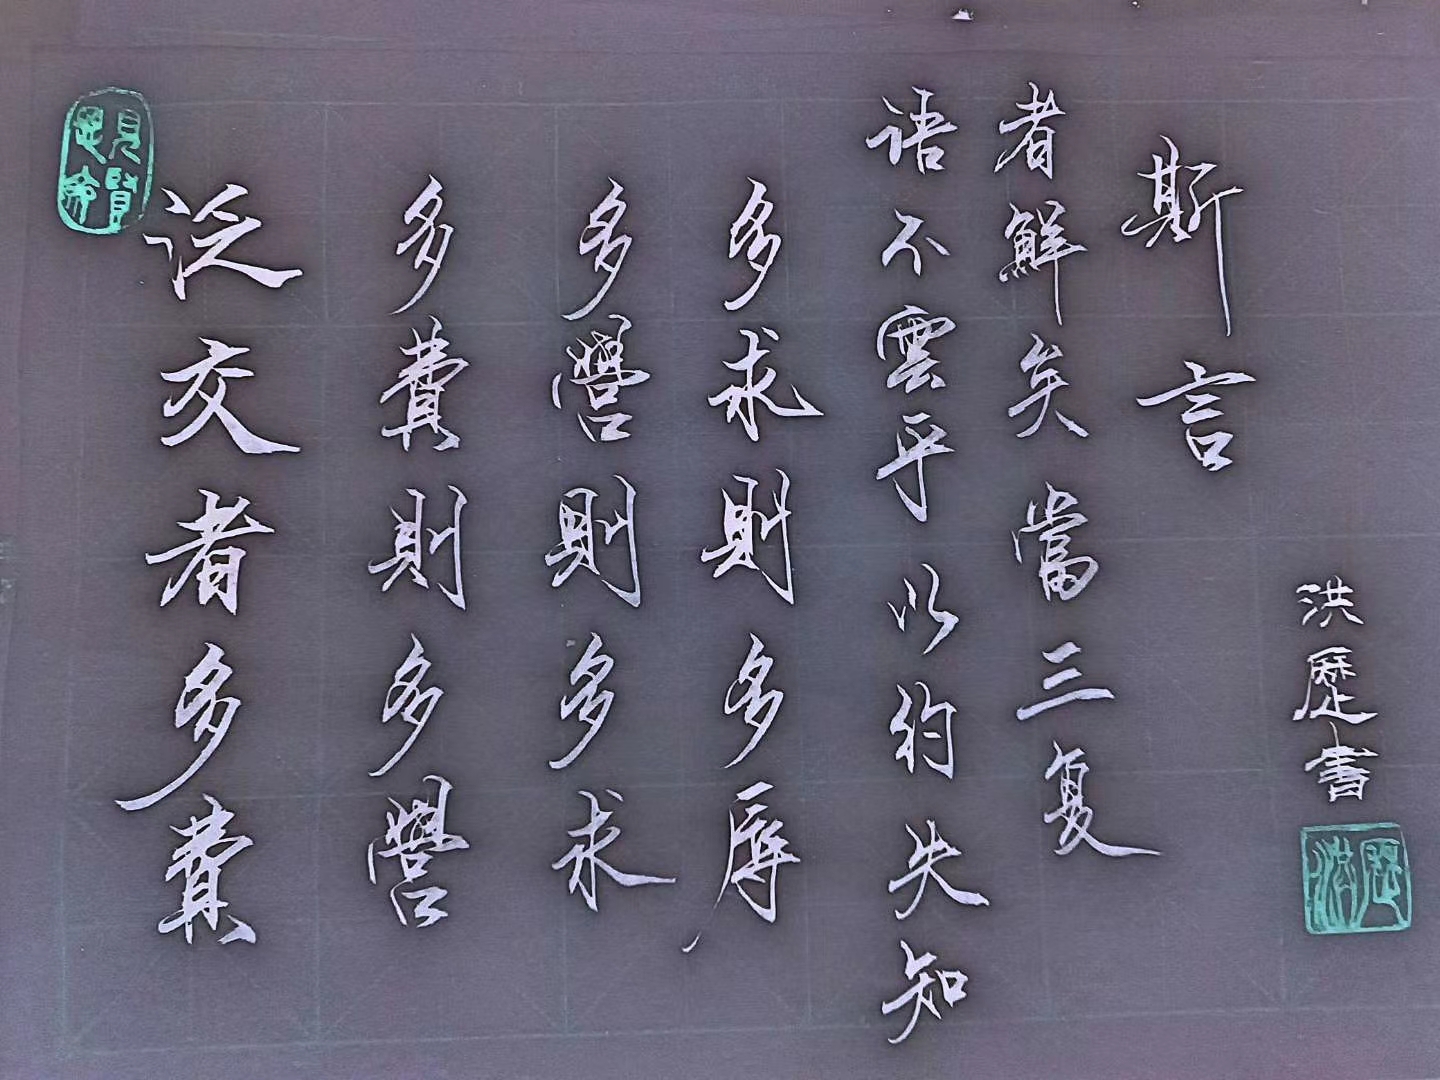 見賢思齊
泛交者多費
多費則多營
多營則多求
多求則多辱
语不雲乎以約失知
者鮮矣當三复
斯言
洪歷書